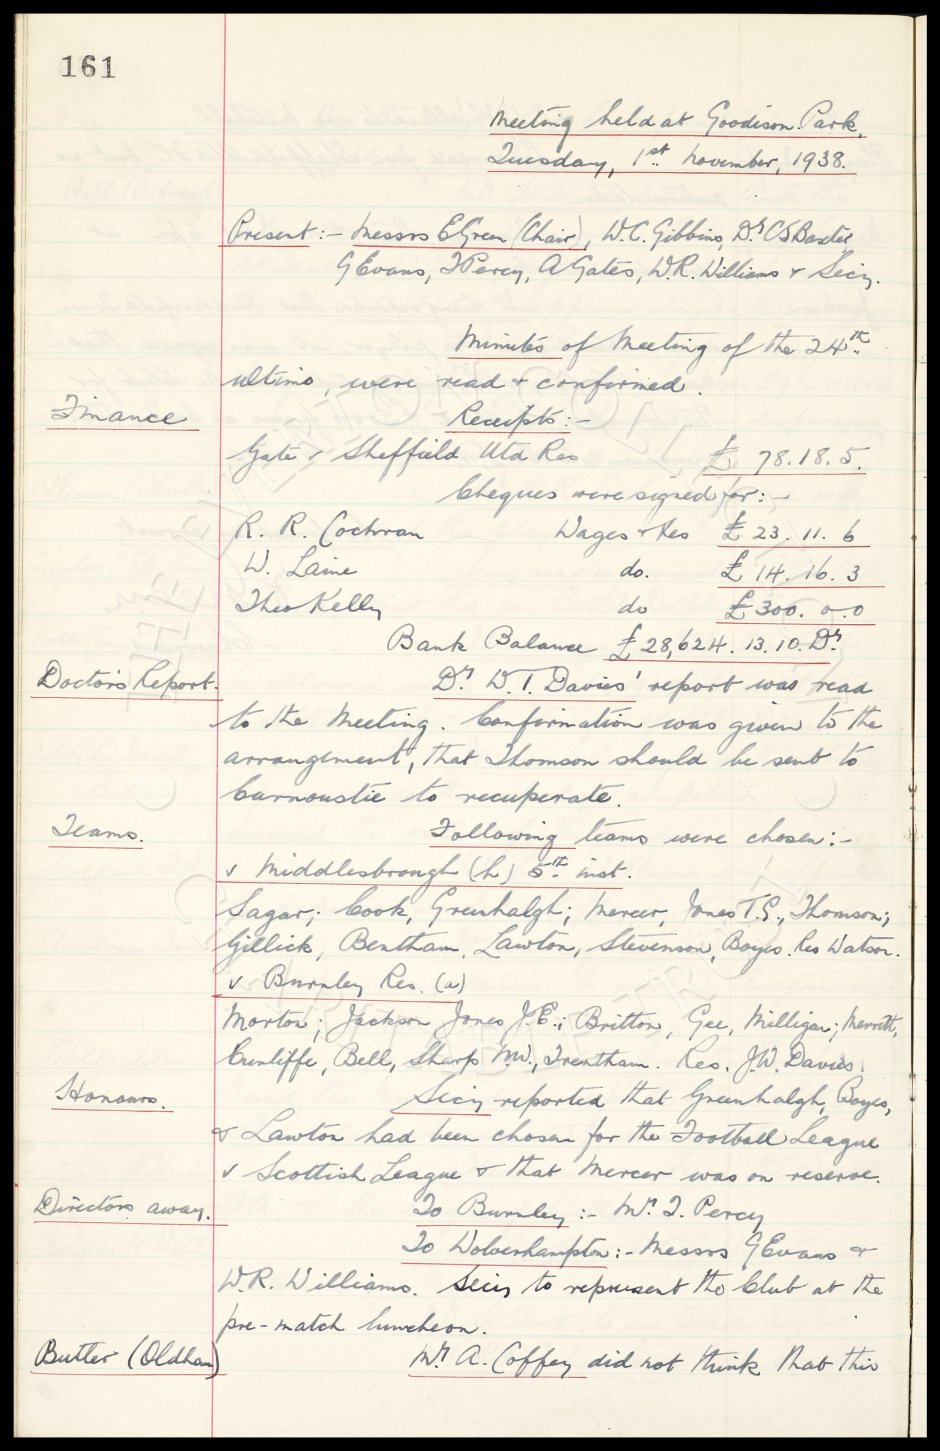 161
Meeting held at Goodison Park,
Tuesday, 1st November, 1938.
Present:- Messrs E Green (Chair), W.C. Gibbins, Dr C S Baxter,
G Evans, T Percy, A Gates, W.R. Williams & Secy.
Minutes of Meeting of the 24th
ultimo, were read & confirmed.
Finance
Receipts:-
Gate v Sheffield Utd Res £ 78.18.5.
Cheques were signed for:-
R. R. Cochran Wages & Res £ 23. 11. 6
W. Laine do. £ 14. 16. 3
Theo Kelly do £ 300. 0. 0
Bank Balance £ 28,624. 13. 10. Dr
Doctors Report.
Dr W. T. Davies' report was read
to the Meeting. Confirmation was given to the
arrangement, that Thomson should be sent to
Carnoustie to recuperate.
Teams.
Following teams were chosen:-
v Middlesbrough (h) 5th inst.
Sagar; Cook, Greenhalgh; Mercer, Jones T.G., Thomson;
Gillick, Bentham, Lawton, Stevenson, Boyes. Res Watson.
v Burnley Res. (a)
Morton; Jackson Jones J.E.; Britton, Gee, Milligan; Merritt,
Cunliffe, Bell, Sharp N.W., Trentham. Res. J.W. Davies.
Honours.
Secy reported that Greenhalgh, Boyes,
& Lawton had been chosen for the Football League
v Scottish League & that Mercer was on reserve.
Directors away.
To Burnley:- Mr. T. Percy
To Wolverhampton:- Messrs G Evans &
W.R. Williams. Secy to represent the Club at the
pre-match luncheon.
Butler (Oldham)
Mr A. Coffey did not think that this